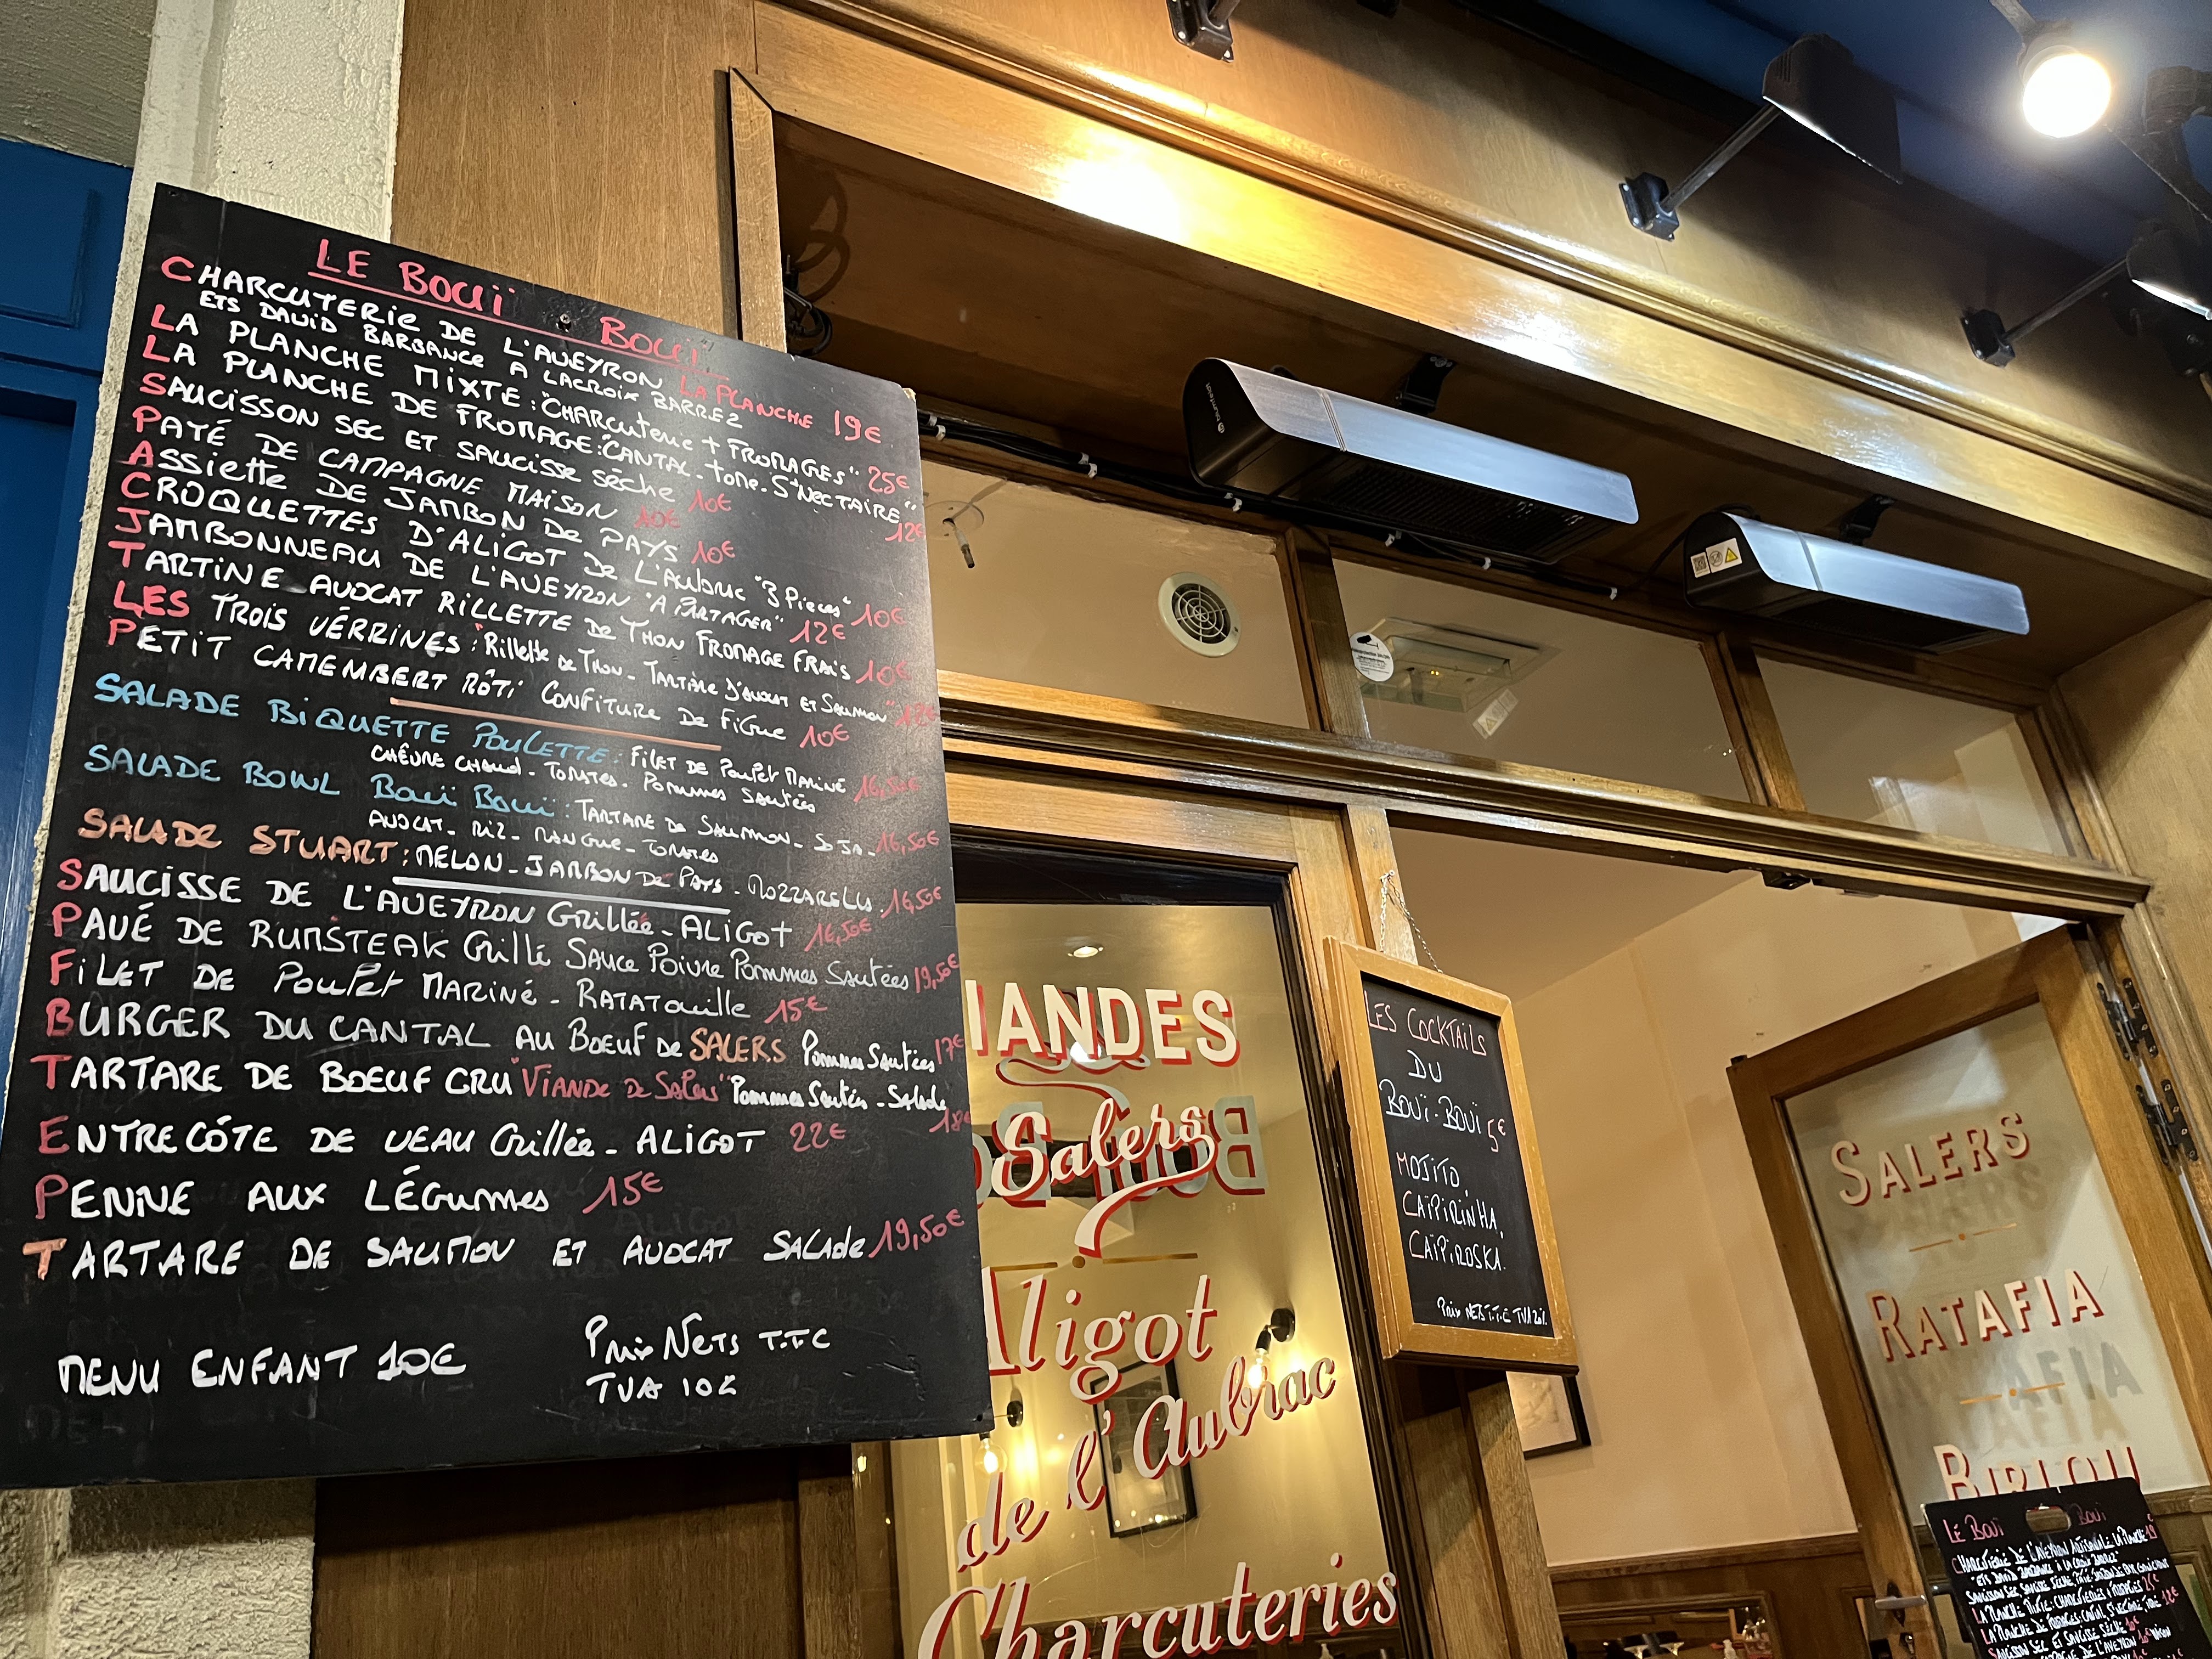 LE BOUÏ BOUÏ
CHARCUTERIE DE L'AVEYRON LA PLANCHE 19€
ETS DAVID BARBANCE A LACROIX BARREZ
LA PLANCHE MIXTE : "CHARCUTERIE + FROMAGES" 25€
LA PLANCHE DE FROMAGE : "CANTAL - TOME - ST NECTAIRE" 12€
SAUCISSON SEC ET SAUCISSE SÈCHE 10€
PATÉ DE CAMPAGNE MAISON 10€
ASSIETTE DE JAMBON DE PAYS 10€
CROQUETTES D'ALIGOT DE L'AUBRAC "3 PIECES" 10€
JAMBONNEAU DE L'AVEYRON "A PARTAGER" 12€
TARTINE AVOCAT RILLETTE DE THON FROMAGE FRAIS 10€
LES TROIS VÉRRINES : "RILLETTE DE THON - TARTARE D'AVOCAT ET SAUMON" 12€
PETIT CAMEMBERT RÔTI CONFITURE DE FIGUE 10€
SALADE BIQUETTE POULETTE : FILET DE POULET MARINÉ
CHÈVRE CHAUD - TOMATES - POMMES SAUTÉES 16,50€
SALADE BOWL BOUÏ BOUÏ : TARTARE DE SAUMON - SOJA -
AVOCAT - RIZ - MANGUE - TOMATES 16,50€
SALADE STUART : MELON - JAMBON DE PAYS - MOZZARELLA 16,50€
SAUCISSE DE L'AVEYRON GRILLÉE - ALIGOT 16,50€
PAVÉ DE RUMSTEAK GRILLÉ SAUCE POIVRE POMMES SAUTÉES 19,50€
FILET DE POULET MARINÉ - RATATOUILLE 15€
BURGER DU CANTAL AU BOEUF DE SALERS POMMES SAUTÉES 17€
TARTARE DE BOEUF CRU "VIANDE DE SALERS" POMMES SAUTÉES - SALADE 18€
ENTRECÔTE DE VEAU GRILLÉE - ALIGOT 22€
PENNE AUX LÉGUMES 15€
TARTARE DE SAUMON ET AVOCAT SALADE 19,50€
MENU ENFANT 10€
PRIX NETS T.T.C
TVA 10%
IANDES
Salers
Aligot
de l'Aubrac
Charcuteries
LES COCKTAILS
DU
BOUÏ-BOUÏ 5€
MOJITO,
CAÏPIRINHA,
CAÏPIROSKA.
PRIX NETS T.T.C TVA 20%
SALERS
RATAFIA
BIRLOU
LE BOUÏ BOUÏ
CHARCUTERIE DE L'AVEYRON ARTISANALE LA PLANCHE 19€
LA PLANCHE MIXTE : CHARCUTERIES + FROMAGES 25€